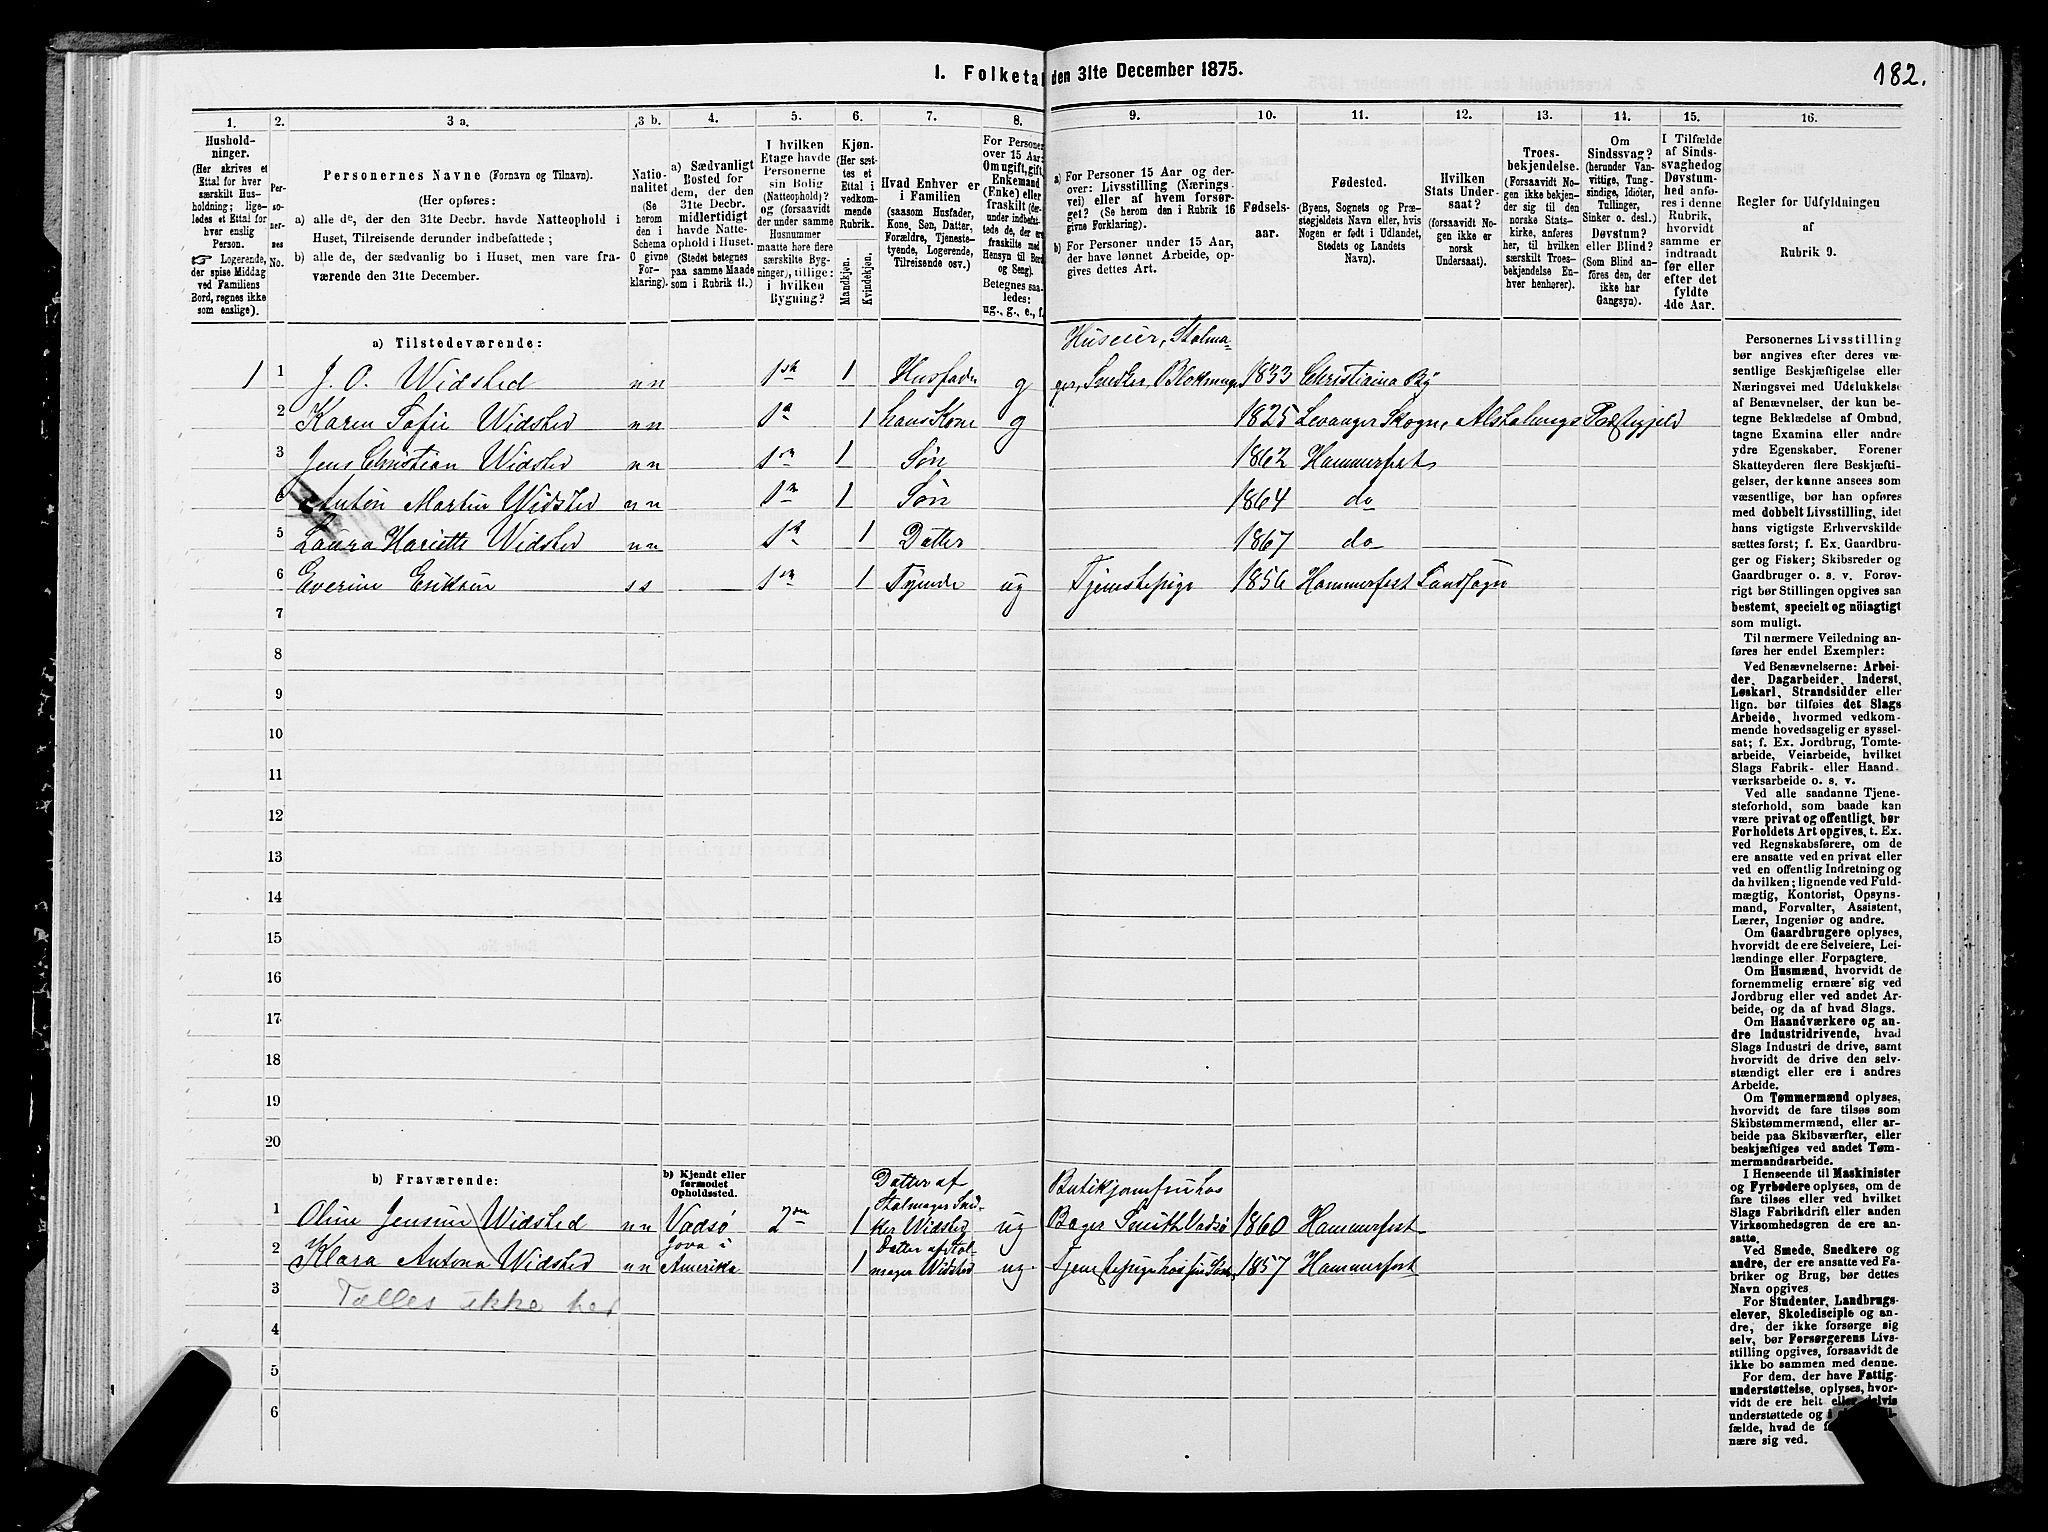 I. Folketal den 31te December 1875.
182.
1.
2.
3 a.
3 b.
4.
5.
6.
7.
8.
9.
10.
11.
12.
13.
14.
15.
16.
Hushold-
ninger.
(Her skrives et
Ettal for hver
særskilt Hus-
holdning; lige-
ledes et Ettal for
hver enslig
Person.
☞ Logerende,
der spise Middag
ved Familiens
Bord, regnes ikke
som enslige).
Per-
so-
ner-
nes
No.
Personernes Navne (Fornavn og Tilnavn).
(Her opføres:
a) alle de, der den 31te Decbr. havde Natteophold i
Huset, Tilreisende derunder indbefattede;
b) alle de, der sædvanlig bo i Huset, men vare fra-
værende den 31te December.
Natio-
nalitet
(Se
herom
den i
Schema
O givne
For-
klaring).
a) Sædvanligt
Bosted for
dem, der den
31te Decbr.
midlertidigt
havde Natte-
ophold i Huset.
(Stedet betegnes
paa samme Maade
som i Rubrik 11.)
I hvilken
Etage havde
Personerne
sin Bolig
(Natteophold)?
og (forsaavidt
der under samme
Husnummer
maatte høre flere
særskilte Byg-
ninger), tillige:
i hvilken
Bygning?
Kjøn.
(Her sæt-
tes et
Ettal i
vedkom-
mende
Rubrik.
Mandkjøn.
Kvindekjøn.
Hvad Enhver er
i Familien
(saasom Husfader,
Kone, Søn, Datter,
Forældre, Tjeneste-
tyende, Logerende,
Tilreisende osv.)
For Personer
over 15 Aar:
Om ugift, gift,
Enkemand
(Enke) eller
fraskilt (der-
under indbefat-
tede de, der ere
fraskilte med
Hensyn til Bord
og Seng).
Betegnes saa-
ledes:
ug., g., e., f.
a) For Personer 15 Aar og der-
over: Livsstilling (Nærings-
vei) eller af hvem forsør-
get? (Se herom den i Rubrik 16
givne Forklaring).
b) For Personer under 15 Aar,
der have lønnet Arbeide, op-
gives dettes Art.
Fødsels-
aar.
Fødested.
(Byens, Sognets og Præ-
stegjeldets Navn eller, hvis
Nogen er født i Udlandet,
Stedets og Landets
Navn).
Hvilken
Stats Under-
saat?
(forsaavidt No-
gen ikke er
norsk
Undersaat).
Troes-
bekjendelse.
(Forsaavidt No-
gen ikke bekjen-
der sig til den
norske Stats-
kirke, anføres
her, til hvilken
særskilt Troes-
bekjendelse En-
hver henhører).
Om
Sindssvag?
(herunder Van-
vittige, Tung-
sindige, Idioter,
Tullinger,
Sinker o. desl.)
Døvstum?
eller Blind?
(Som Blind an-
føres den, der
ikke har
Gangsyn).
I Tilfælde
af Sinds-
svaghed og
Døvstum-
hed anfø-
res i denne
Rubrik,
hvorvidt
samme er
indtraadt
før eller
efter det
fyldte
4de Aar.
Regler for Udfyldningen
af
Rubrik 9.
a) Tilstedeværende:
Huseier, Stolma-
1 1 J. O. Widsted nn 1ste 1 Husfader g ger, Snedker, Blokmager 1833 Christiania By
2 Karen Sofie Widsted nn 1 1 hans Kone g 1825 Levanger Skogn, Alstahougs Præstegjeld
3 Jens Christian Widsted nn 1 1 Søn 1862 Hammerfest
4 Anton Martin Widsted nn 1 1 Søn 1864 do
5 Laura Hariette Widsted nn 1 1 Datter 1867 do
6 Everine Eriksen ss 1 1 Tyende ug Tjenestepige 1856 Hammerfest Landsogn
7
8
9
10
11
12
13
14
15
16
17
18
19
20
b) Fraværende:
b) Kjendt eller
formodet
Opholdssted.
Datter af
Stolmager Sned-
ker Widsted
Butikjomfru hos
1 Oline Jensine Widsted nn Vadsö 2 1 ug Bager Smith Vadsø 1860 Hammerfest
2 Klara Antona Widsted nn Jova i Amerika 1 Datter af Stol-
mager Widsted ug. Tjenestepige hos 1857 Hammerfest
3 Tælles ikke her
4
5
6
Personernes Livsstilling
bør angives efter deres væ-
sentlige Beskjæftigelse eller
Næringsvei med Udelukkelse
af Benævnelser, der kun be-
tegne Beklædelse af Ombud,
tagne Examina eller andre
ydre Egenskaber. Forener
Skatteyderen flere Beskjæfti-
gelser, der kunne ansees som
væsentlige, bør han opføres
med dobbelt Livsstilling, idet
hans vigtigste Erhvervskilde
sættes først; f. Ex. Gaardbru-
ger og Fisker; Skibsreder og
Gaardbruger o. s. v. Forøv-
rigt bør Stillingen opgives saa
bestemt, specielt og nöiagtigt
som muligt.
Til nærmere Veiledning an-
føres her endel Exempler:
Ved Benævnelserne: Arbei-
der, Dagarbeider, Inderst,
Løskarl, Strandsidder eller
lign. bør tilføies det Slags
Arbeide, hvormed vedkom-
mende hovedsagelig er syssel-
sat; f. Ex. Jordbrug, Tomte-
arbeide, Veiarbeide, hvilket
Slags Fabrik- eller Haand-
værksarbeide o. s. v.
Ved alle saadanne Tjene-
steforhold, som baade kan
være privat og offentligt, bør
Forholdets Art opgives, t. Ex.
ved Regnskabsførere, om de
ere ansatte ved en privat eller
ved en offentlig Indretning og
da hvilken; lignende ved Fuld-
mægtig, Kontorist, Opsyns-
mand, Forvalter, Assistent,
Lærer, Ingeniør og andre.
Om Gaardbrugere oplyses,
hvorvidt de ere Selveiere, Lei-
lændinge eller Forpagtere.
Om Husmænd, hvorvidt de
fornemmelig ernære sig ved
Jordbrug eller ved andet Ar-
beide, og da af hvad Slags.
Om Haandværkere og an-
dre Industridrivende, hvad
Slags Industri de drive, samt
hvorvidt de drive den selv-
stændigt eller ere i andres
Arbeide.
Om Tømmermænd oplyses,
hvorvidt de fare tilsøs som
Skibstømmermænd, eller ar-
beide paa Skibsværfter, eller
beskjæftiges ved andet Tøm-
mermandsarbeide.
I Henseende til Maskinister
og Fyrbødere oplyses, om de
fare tilsøs eller ved hvilket
Slags Fabrikdrift eller anden
Virksomhedsgren de ere an-
satte.
Ved Smede, Snedkere og
andre, der ere ansatte ved Fa-
briker og Brug, bør dettes
Navn opgives.
For Studenter, Landbrugs-
elever, Skoledisciple og an-
dre, der ikke forsørge sig
selv, bør Forsørgerens Livs-
stilling opgives, forsaavidt de
ikke bo sammen med denne.
For dem, der have Fattig-
understøttelse, oplyses, hvor-
vidt de ere helt eller delvis
understøttede og i
fælde, hvad de
nære sig ved.